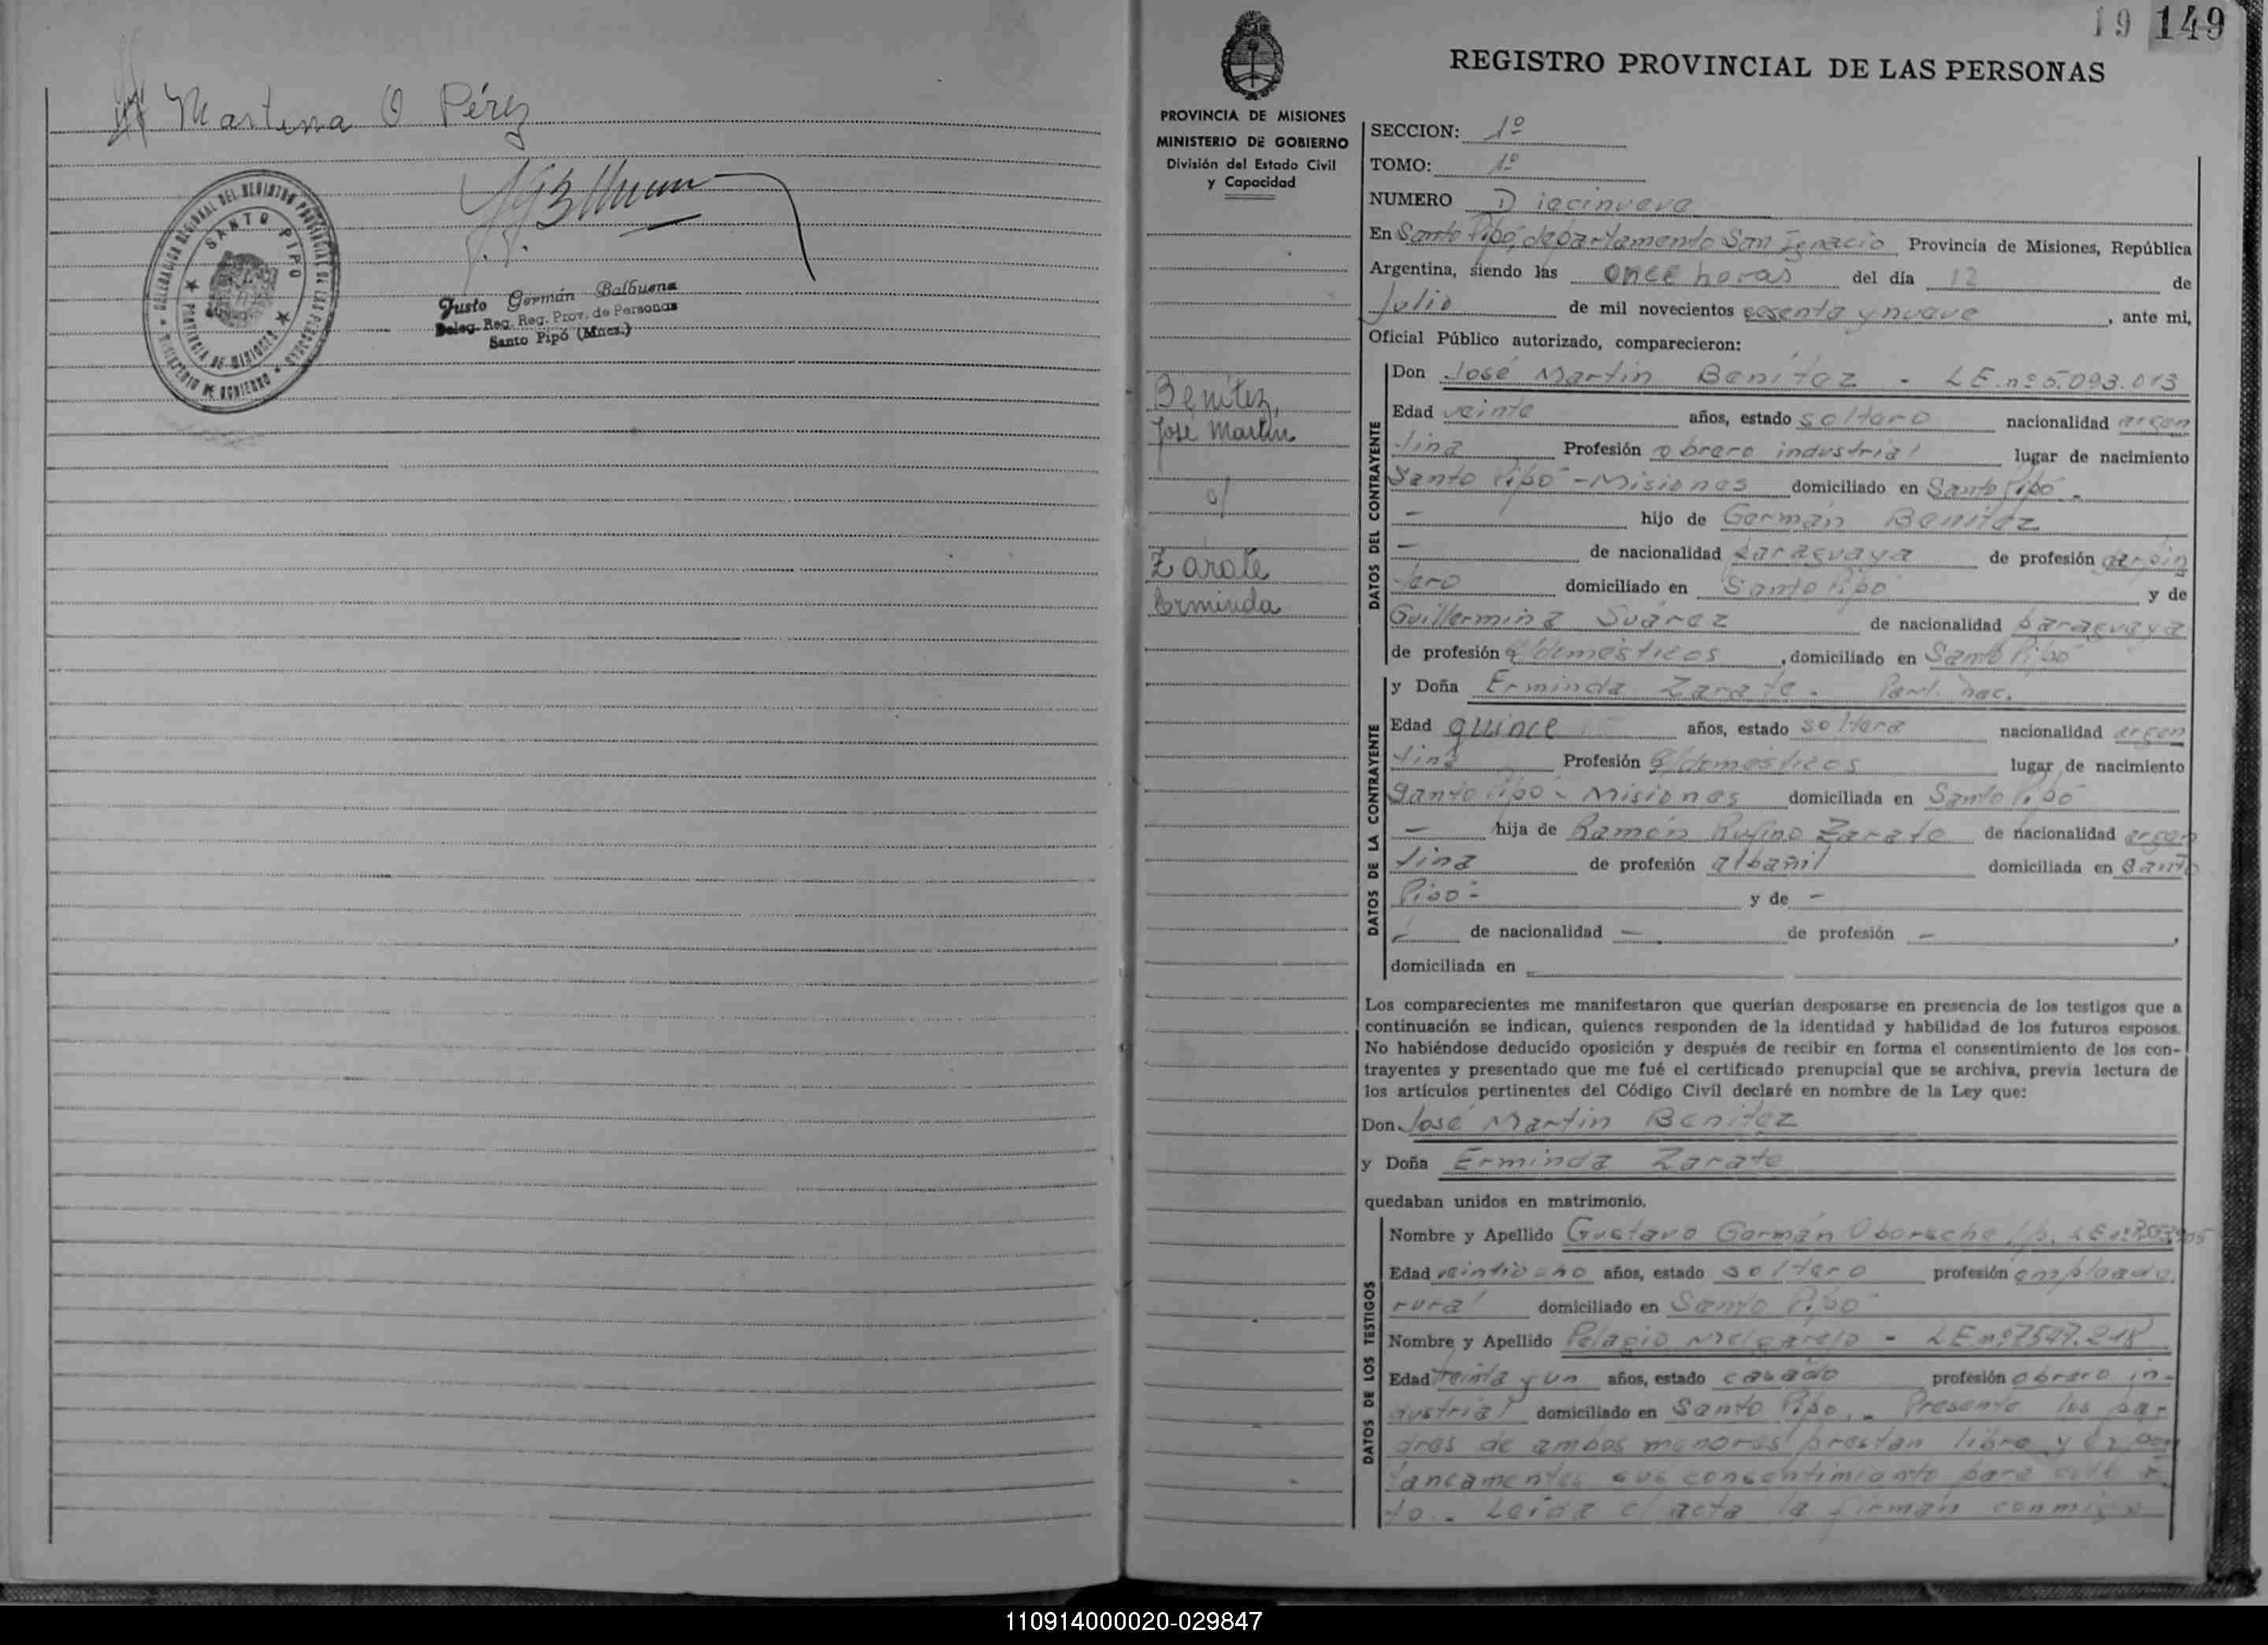 Martina O Pérez
DELEGACION REGIONAL DEL REGISTRO PROVINCIAL DE LAS PERSONAS
SANTO PIPO
PROVINCIA DE MISIONES
MINISTERIO DE GOBIERNO
Justo Germán Balbuena
Deleg. Reg. Reg. Prov. de Personas
Santo Pipó (Mnes.)
19 149
REGISTRO PROVINCIAL DE LAS PERSONAS
PROVINCIA DE MISIONES
MINISTERIO DE GOBIERNO
División del Estado Civil
y Capacidad
Benítez,
José Martín
c/
Zarate
Erminda
SECCION: 1º
TOMO: 1º
NUMERO Diecinueve
En Santo Pipó, departamento San Ignacio Provincia de Misiones, República
Argentina, siendo las once horas del día 12 de
Julio de mil novecientos sesenta y nueve, ante mi,
Oficial Público autorizado, comparecieron:
DATOS DEL CONTRAYENTE
Don José Martín Benítez - L E. nº 5.093.013
Edad veinte años, estado soltero nacionalidad argen
tina Profesión obrero industrial lugar de nacimiento
Santo Pipó - Misiones domiciliado en Santo Pipó -
- hijo de Germán Benítez
- de nacionalidad paraguaya de profesión carpin
tero domiciliado en Santo Pipó y de
Guillermina Suárez de nacionalidad paraguaya
de profesión q/domésticos, domiciliado en Santo Pipó
DATOS DE LA CONTRAYENTE
y Doña Erminda Zarate - Part. nac.
Edad quince años, estado soltera nacionalidad argen
tina Profesión q/domésticos lugar de nacimiento
Santo Pipó - Misiones domiciliada en Santo Pipó
- hija de Ramón Rufino Zarate de nacionalidad argen
tina de profesión albañil domiciliada en Santo
Pipó - y de -
- de nacionalidad - de profesión -,
domiciliada en
Los comparecientes me manifestaron que querían desposarse en presencia de los testigos que a
continuación se indican, quienes responden de la identidad y habilidad de los futuros esposos.
No habiéndose deducido oposición y después de recibir en forma el consentimiento de los con-
trayentes y presentado que me fué el certificado prenupcial que se archiva, previa lectura de
los artículos pertinentes del Código Civil declaré en nombre de la Ley que:
Don José Martín Benítez
y Doña Erminda Zarate
quedaban unidos en matrimonio.
DATOS DE LOS TESTIGOS
Nombre y Apellido Gustavo Germán
Edad veintiocho años, estado soltero profesión empleado
rural domiciliado en Santo Pipó
Nombre y Apellido Pelagio Melgarejo - L E nº 7547.218
Edad treinta y un años, estado casado profesión obrero in-
dustrial domiciliado en Santo Pipó.- Presente los pa-
dres de ambos menores prestan libre y espon
taneamente sus consentimiento para
to.- Leída el acta la firman conmigo
110914000020-029847